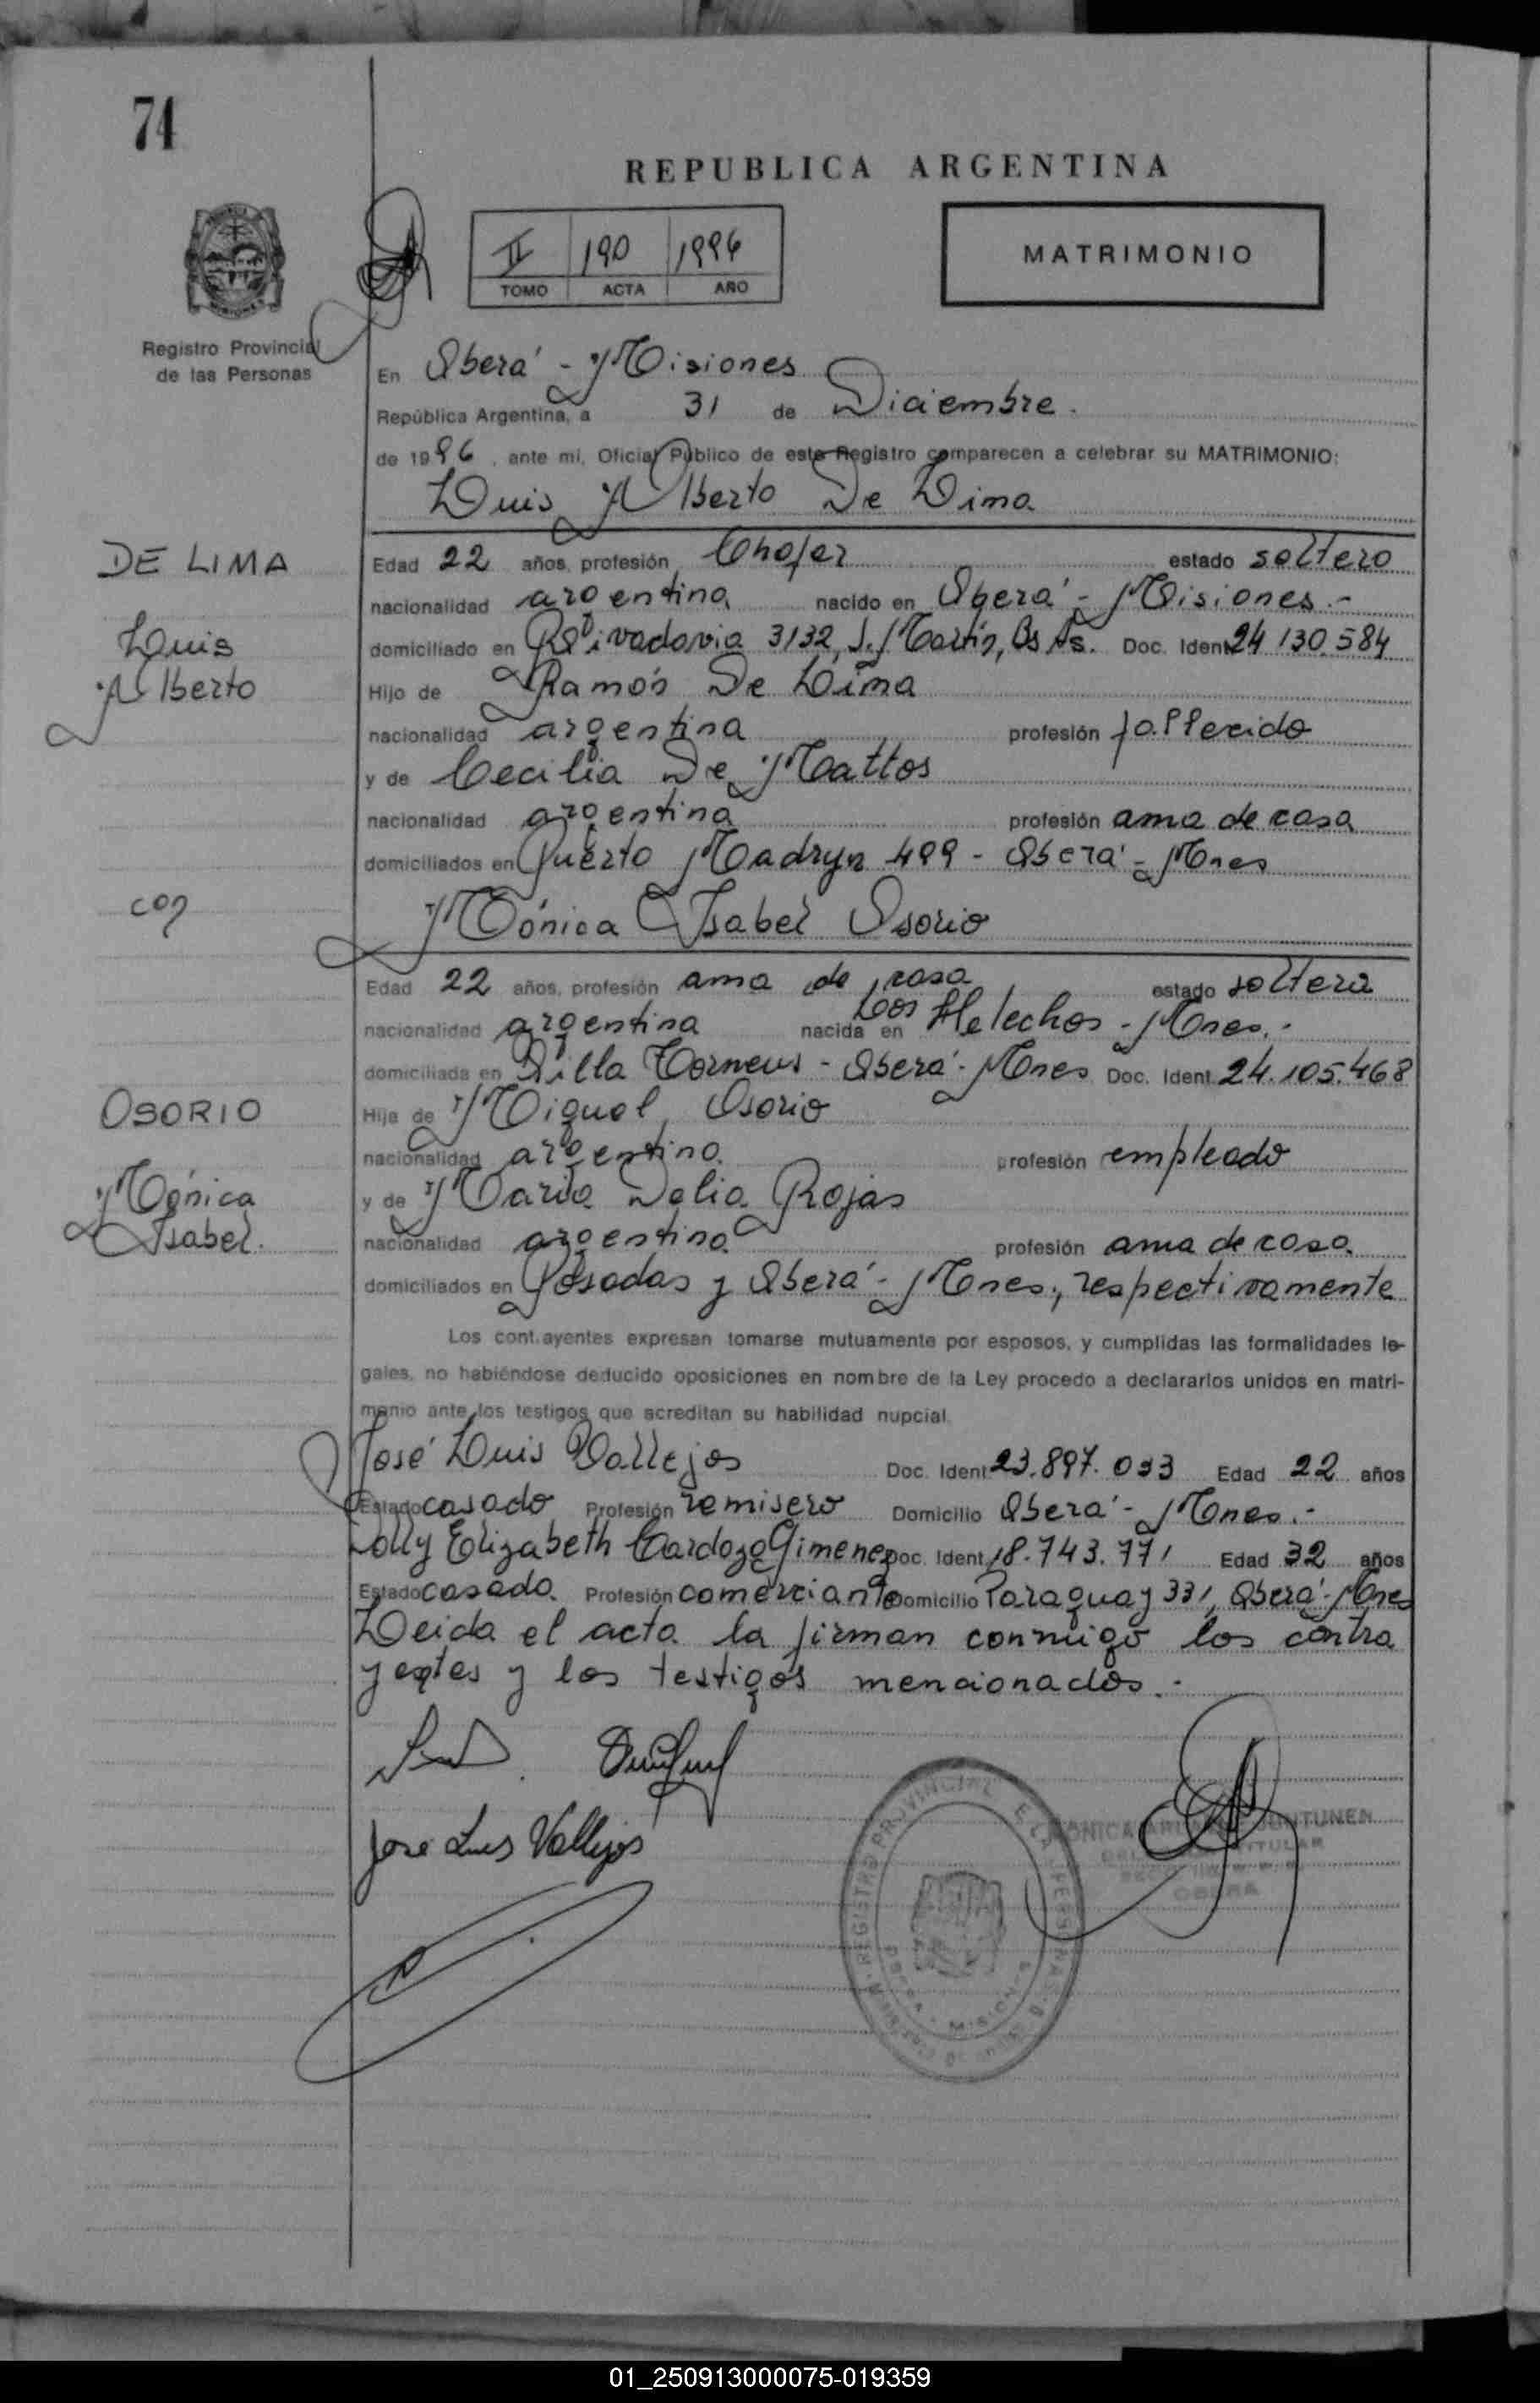 74
REPUBLICA ARGENTINA
II 190 1996
TOMO ACTA AÑO
MATRIMONIO
Registro Provincial
de las Personas
En Oberá - Misiones
República Argentina, a 31 de Diciembre.
de 1996, ante mí, Oficial Público de este Registro comparecen a celebrar su MATRIMONIO:
Luis Alberto De Lima
DE LIMA
Luis
Alberto
Edad 22 años, profesión Chofer estado soltero
nacionalidad argentina nacido en Oberá - Misiones.-
domiciliado en Rivadavia 3132, S. Martín, Bs As. Doc. Ident 24 130.584
Hijo de Ramón De Lima
nacionalidad argentina profesión fallecido
y de Cecilia De Mattos
nacionalidad argentina profesión ama de casa
domiciliados en Puerto Madryn 499 - Oberá - Mnes
con
Mónica Isabel Osorio
Edad 22 años, profesión ama de casa estado soltera
nacionalidad argentina nacida en Los Helechos - Mnes.-
domiciliada en Villa Torneus - Oberá - Mnes Doc. Ident. 24.105.468
OSORIO
Mónica
Isabel.
Hija de Miguel Osorio
nacionalidad argentino. profesión empleado
y de María Delia Rojas
nacionalidad argentina profesión ama de casa.
domiciliados en Posadas y Oberá - Mnes, respectivamente
Los contrayentes expresan tomarse mutuamente por esposos, y cumplidas las formalidades le-
gales, no habiéndose deducido oposiciones en nombre de la Ley procedo a declararlos unidos en matri-
monio ante los testigos que acreditan su habilidad nupcial.
José Luis Vallejos Doc. Ident 23.897.033 Edad 22 años
Estado casado Profesión remisero Domicilio Oberá - Mnes.-
Lolly Elizabeth Cardozo Gimenez Doc. Ident. 18.743.771 Edad 32 años
Estado casada. Profesión comerciante Domicilio Paraguay 331, Oberá - Mnes
Leida el acta la firman conmigo los contra
yentes y los testigos mencionados.-
José Luis Vallejos
REGISTRO PROVINCIAL DE LAS PERSONAS
OBERA - MISIONES
OBERA
01_250913000075-019359